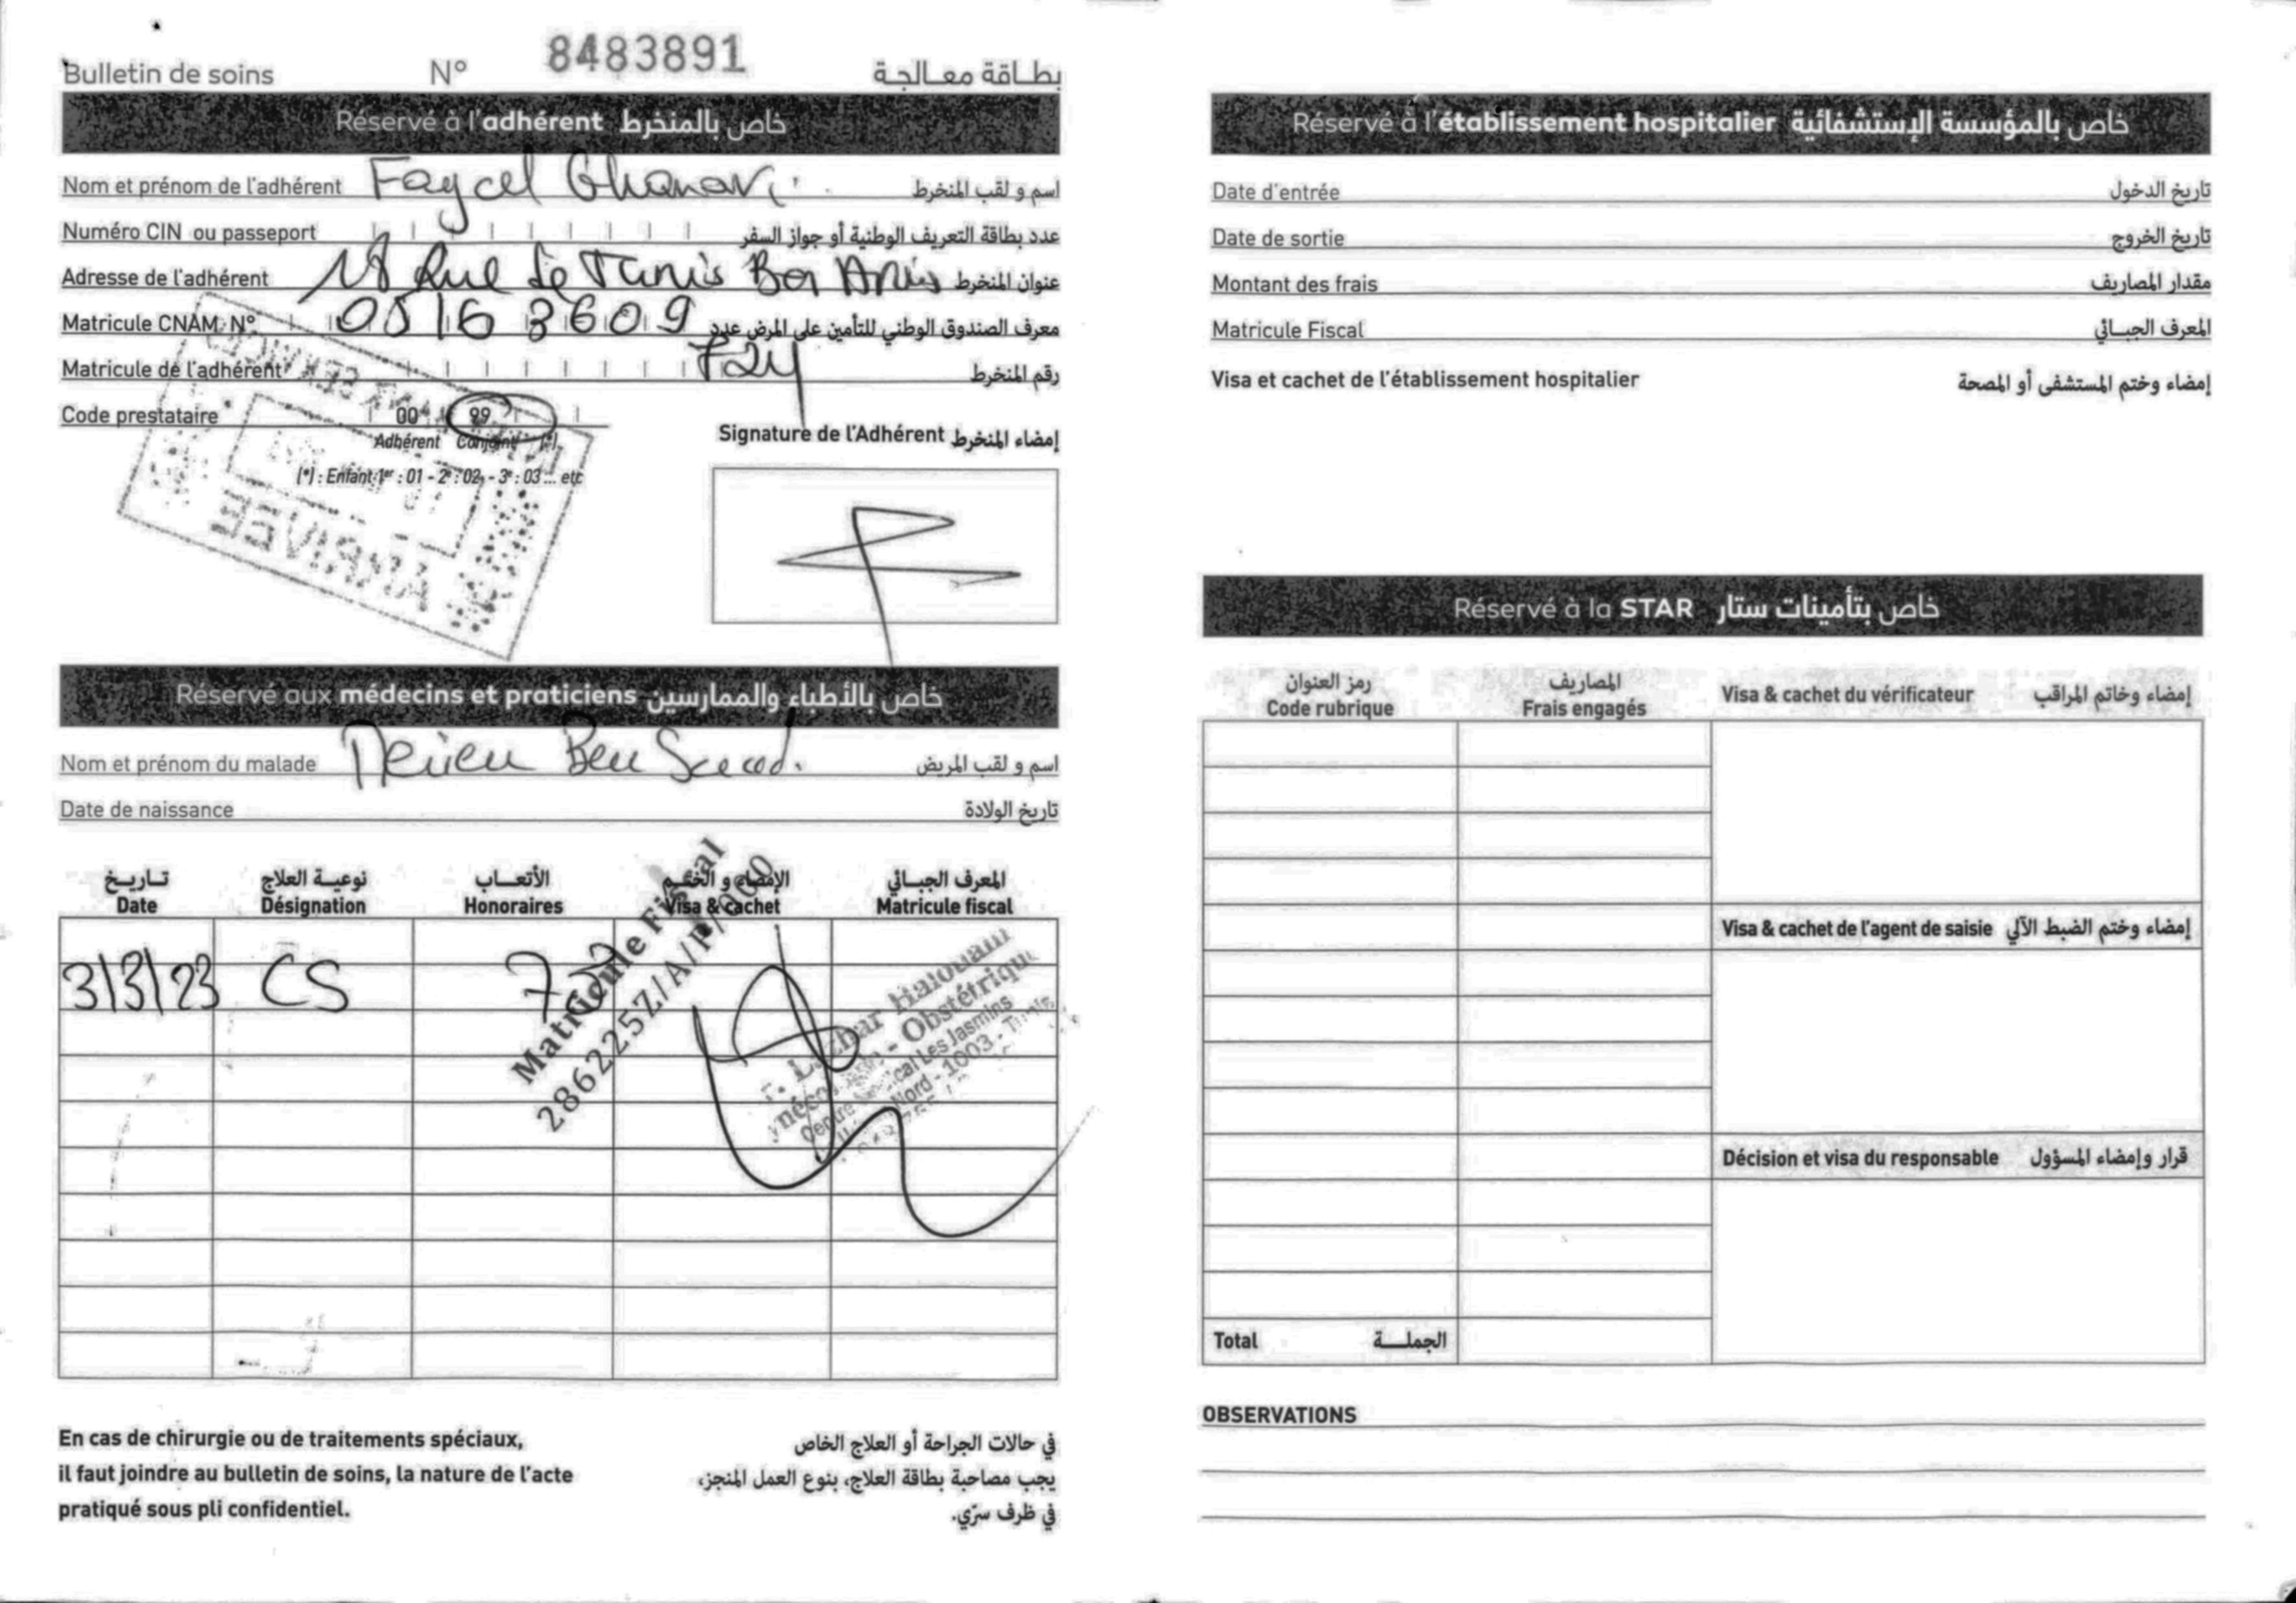 Bulletin de soins N° 8483891 بطاقة معالجة
Réservé à l'adhérent خاص بالمنخرط
Nom et prénom de l'adhérent Fayçel Ghanavi اسم و لقب المنخرط
Numéro CIN ou passeport عدد بطاقة التعريف الوطنية أو جواز السفر
Adresse de l'adhérent 18 Rue de Tunis Ben Arous عنوان المنخرط
Matricule CNAM N° 05163609 معرف الصندوق الوطني للتأمين على المرض عدد
Matricule de l'adhérent 724 رقم المنخرط
Code prestataire 00 99
Adhérent Conjoint (*)
(*) : Enfant 1er : 01 - 2e : 02 - 3e : 03 ... etc
Signature de l'Adhérent إمضاء المنخرط
Réservé aux médecins et praticiens خاص بالأطباء والممارسين
Nom et prénom du malade Ben اسم و لقب المريض
Date de naissance تاريخ الولادة
تاريخ نوعية العلاج الأتعاب الإمضاء و الختم المعرف الجبائي
Date Désignation Honoraires Visa & cachet Matricule fiscal
3/3/23 CS
Matricule Fiscal
2862225Z/A/P/000
Halouani
- Obstétrique
Les Jasmins
Nord - 1003 - Tunis
En cas de chirurgie ou de traitements spéciaux,
il faut joindre au bulletin de soins, la nature de l'acte
pratiqué sous pli confidentiel.
في حالات الجراحة أو العلاج الخاص
يجب مصاحبة بطاقة العلاج، بنوع العمل المنجز،
في ظرف سرّي.
Réservé à l'établissement hospitalier خاص بالمؤسسة الإستشفائية
Date d'entrée تاريخ الدخول
Date de sortie تاريخ الخروج
Montant des frais مقدار المصاريف
Matricule Fiscal المعرف الجبائي
Visa et cachet de l'établissement hospitalier إمضاء وختم المستشفى أو المصحة
Réservé à la STAR خاص بتأمينات ستار
رمز العنوان المصاريف
Code rubrique Frais engagés Visa & cachet du vérificateur إمضاء وخاتم المراقب
Visa & cachet de l'agent de saisie إمضاء وختم الضبط الآلي
Décision et visa du responsable قرار وإمضاء المسؤول
Total الجملة
OBSERVATIONS